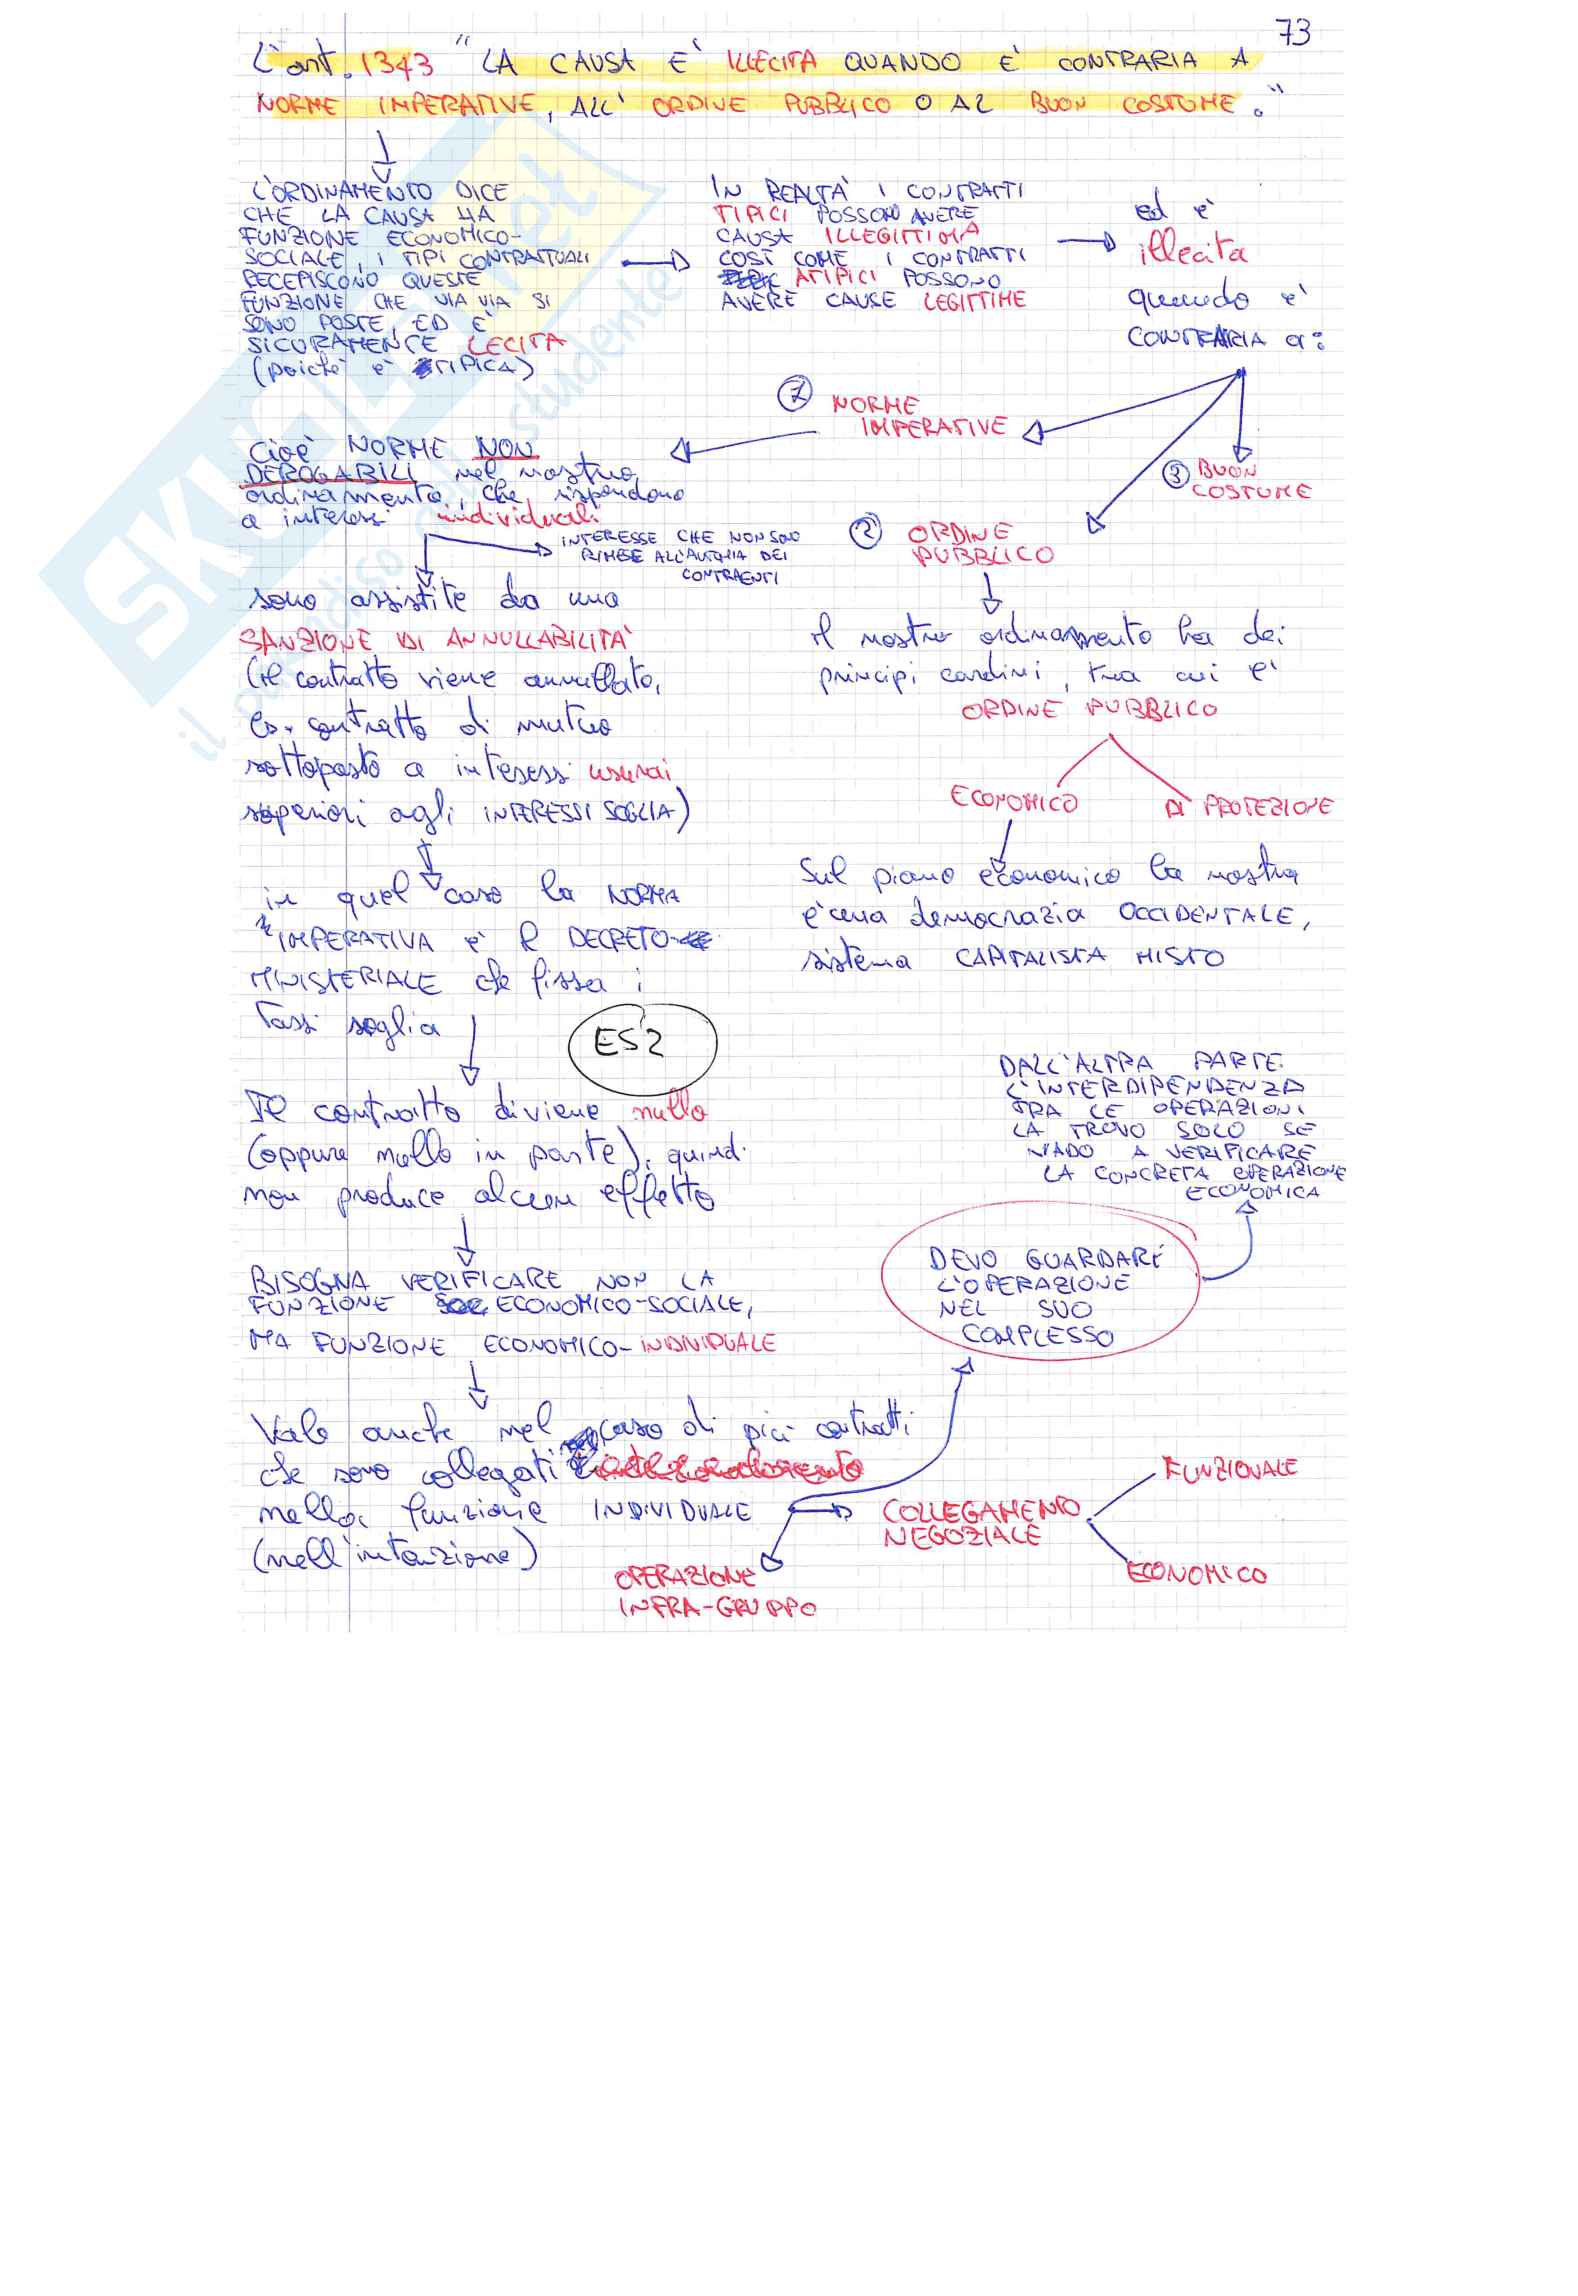 73
L'art. 1343 "LA CAUSA E' ILLECITA QUANDO E' CONTRARIA A
NORME IMPERATIVE, ALL' ORDINE PUBBLICO O AL BUON COSTUME."
L'ORDINAMENTO DICE
CHE LA CAUSA HA
FUNZIONE ECONOMICO-
SOCIALE, I TIPI CONTRATTUALI
RECEPISCONO QUESTE
FUNZIONE CHE VIA VIA SI
SONO POSTE, ED E'
SICURAMENTE LECITA
(poiché è TIPICA)
IN REALTA' I CONTRATTI
TIPICI POSSONO AVERE
CAUSA ILLEGITTIMA
COSÌ COME I CONTRATTI
ATIPICI POSSONO
AVERE CAUSE LEGITTIME
ed è
illecita
quando è
CONTRARIA a:
1 NORME
IMPERATIVE
3 BUON
COSTUME
2 ORDINE
PUBBLICO
Cioè NORME NON
DEROGABILI nel nostro
ordinamento, che rispondono
a interessi individuali
INTERESSE CHE NON SONO
RIMESE ALL'AUTONIA DEI
CONTRAENTI
sono assistite da una
SANZIONE DI ANNULLABILITA'
(il contratto viene annullato,
es. contratto di mutuo
sottoposto a interessi usurai
superiori agli INTERESSI SOGLIA)
in quel caso la NORMA
IMPERATIVA è il DECRETO
MINISTERIALE che fissa i
Tassi soglia
ES2
Il contratto diviene nullo
(oppure nullo in parte), quindi
non produce alcun effetto
BISOGNA VERIFICARE NON LA
FUNZIONE ECONOMICO-SOCIALE,
MA FUNZIONE ECONOMICO-INDIVIDUALE
Vale anche nel caso di più contratti
che sono collegati
nella funzione INDIVIDUALE
(nell'intenzione)
OPERAZIONE
INFRA-GRUPPO
COLLEGAMENTO
NEGOZIALE
FUNZIONALE
ECONOMICO
il nostro ordinamento ha dei
principi cardini, tra cui è
ORDINE PUBBLICO
ECONOMICO
DI PROTEZIONE
Sul piano economico la nostra
è una democrazia OCCIDENTALE,
sistema CAPITALISTA MISTO
DALL'ALTRA PARTE
L'INTERDIPENDENZA
TRA LE OPERAZIONI
LA TROVO SOLO SE
VADO A VERIFICARE
LA CONCRETA OPERAZIONE
ECONOMICA
DEVO GUARDARE
L'OPERAZIONE
NEL SUO
COMPLESSO
SKUOLA.net
il paradiso dello studente